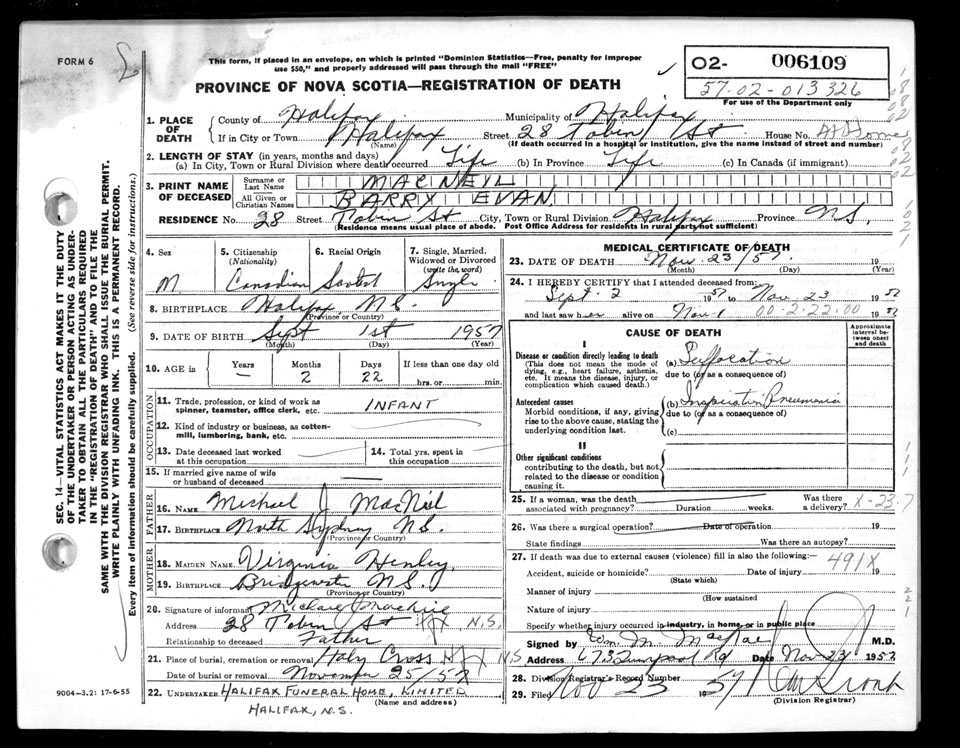 FORM 6
This form, if placed in an envelope, on which is printed "Dominion Statistics—Free, penalty for improper
use $50," and properly addressed will pass through the mail "FREE"
PROVINCE OF NOVA SCOTIA—REGISTRATION OF DEATH
O2- 006109
57-02-013326
For use of the Department only
1. PLACE OF DEATH
County of Halifax Municipality of Halifax
If in City or Town Halifax Street 28 Tobin St House No.
(Name) (If death occurred in a hospital or institution, give the name instead of street and number)
2. LENGTH OF STAY (in years, months and days)
(a) In City, Town or Rural Division where death occurred Life (b) In Province Life (c) In Canada (if immigrant)
3. PRINT NAME OF DECEASED
Surname or Last Name MACNEIL
All Given or Christian Names BARRY EVAN
RESIDENCE No. 28 Street Tobin St City, Town or Rural Division Halifax Province N.S.
(Residence means usual place of abode. Post Office Address for residents in rural parts not sufficient)
4. Sex M
5. Citizenship (Nationality) Canadian
6. Racial Origin
7. Single, Married, Widowed or Divorced (write the word) Single
8. BIRTHPLACE Halifax N.S.
(Province or Country)
9. DATE OF BIRTH Sept 1st 1957
(Month) (Day) (Year)
10. AGE in Years — Months 2 Days 22 If less than one day
hrs. or min.
OCCUPATION
11. Trade, profession or kind of work as
spinner, teamster, office clerk, etc. INFANT
12. Kind of industry or business, as cotton-
mill, lumbering, bank, etc.
13. Date deceased last worked
at this occupation
14. Total yrs. spent in
this occupation
15. If married give name of wife
or husband of deceased
FATHER
16. NAME Michael J MacNeil
17. BIRTHPLACE North Sydney N.S.
(Province or Country)
MOTHER
18. MAIDEN NAME Virginia Henley
19. BIRTHPLACE Bridgewater N.S.
(Province or Country)
20. Signature of informant Michael J MacNeil
Address 28 Tobin St Hfx N.S.
Relationship to deceased Father
21. Place of burial, cremation or removal Holy Cross Hfx N.S
Date of burial or removal November 25/57
22. UNDERTAKER HALIFAX FUNERAL HOME, LIMITED
(Name and address)
HALIFAX, N.S.
9004—3.2: 17-6-55
MEDICAL CERTIFICATE OF DEATH
23. DATE OF DEATH Nov. 23/57 19
(Month) (Day) (Year)
24. I HEREBY CERTIFY that I attended deceased from:
Sept. 2 1957 to Nov 23 1957
and last saw h alive on Nov 1 00-2-22-00 1957
CAUSE OF DEATH
Approximate interval between onset and death
I
Disease or condition directly leading to death
(This does not mean the mode of
dying, e.g., heart failure, asthenia,
etc. It means the disease, injury, or
complication which caused death.)
(a) Suffocation
due to (or as a consequence of)
Antecedent causes
Morbid conditions, if any, giving
rise to the above cause, stating the
underlying condition last.
(b) Pneumonia
due to (or as a consequence of)
(c)
II
Other significant conditions
contributing to the death, but not
related to the disease or condition
causing it.
25. If a woman, was the death
associated with pregnancy? Duration weeks. Was there
a delivery?
X-23-7
26. Was there a surgical operation? Date of operation 19
State findings Was there an autopsy?
27. If death was due to external causes (violence) fill in also the following:
491X
Accident, suicide or homicide? Date of injury 19
(State which)
Manner of injury
(How sustained
Nature of injury
Specify whether injury occurred in industry, in home, or in public place
Signed by Wm. M. MacRae M.D.
Address Date Nov 23 1957
28. Division Registrar's Record Number
29. Filed Nov 23 1957
(Division Registrar)
SEC. 14—VITAL STATISTICS ACT MAKES IT THE DUTY
OF THE UNDERTAKER OR PERSON ACTING AS UNDER-
TAKER TO OBTAIN ALL THE PARTICULARS REQUIRED
IN THE "REGISTRATION OF DEATH" AND TO FILE THE
SAME WITH THE DIVISION REGISTRAR WHO SHALL ISSUE THE BURIAL PERMIT.
WRITE PLAINLY WITH UNFADING INK. THIS IS A PERMANENT RECORD.
Every item of information should be carefully supplied. (See reverse side for instructions.)